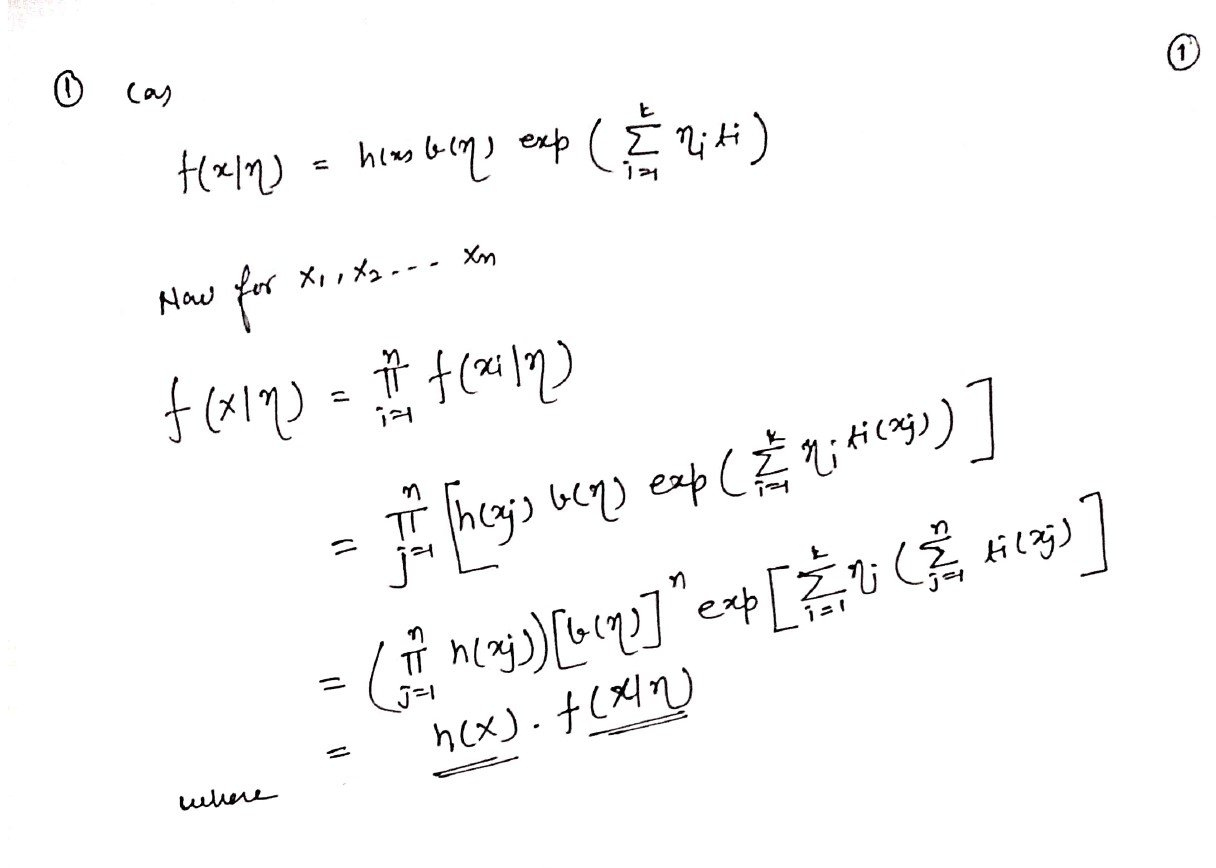 ①
① (a)
f(x|η) = h(x) b(η) exp ( Σ_{i=1}^{k} η_i t_i )
Now for x₁, x₂ --- x_n
f(x|η) = Π_{i=1}^{n} f(x_i|η)
= Π_{j=1}^{n} [h(x_j) b(η) exp ( Σ_{i=1}^{k} η_i t_i(x_j) ) ]
= ( Π_{j=1}^{n} h(x_j)) [b(η)]^n exp [ Σ_{i=1}^{k} η_i ( Σ_{j=1}^{n} t_i(x_j) ]
= h(x) . f(x|η)
where